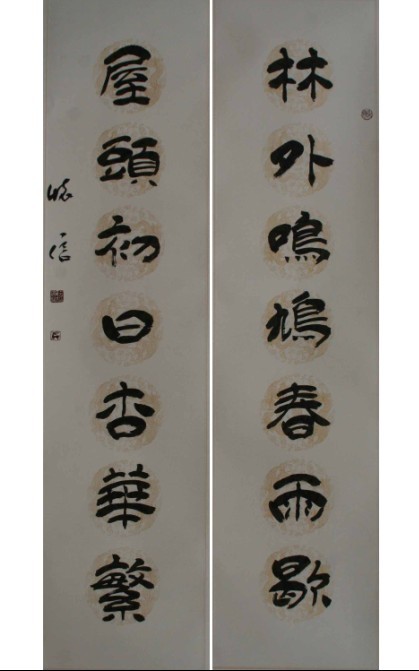 林外鳴鳩春雨歇
屋頭初日杏華繁